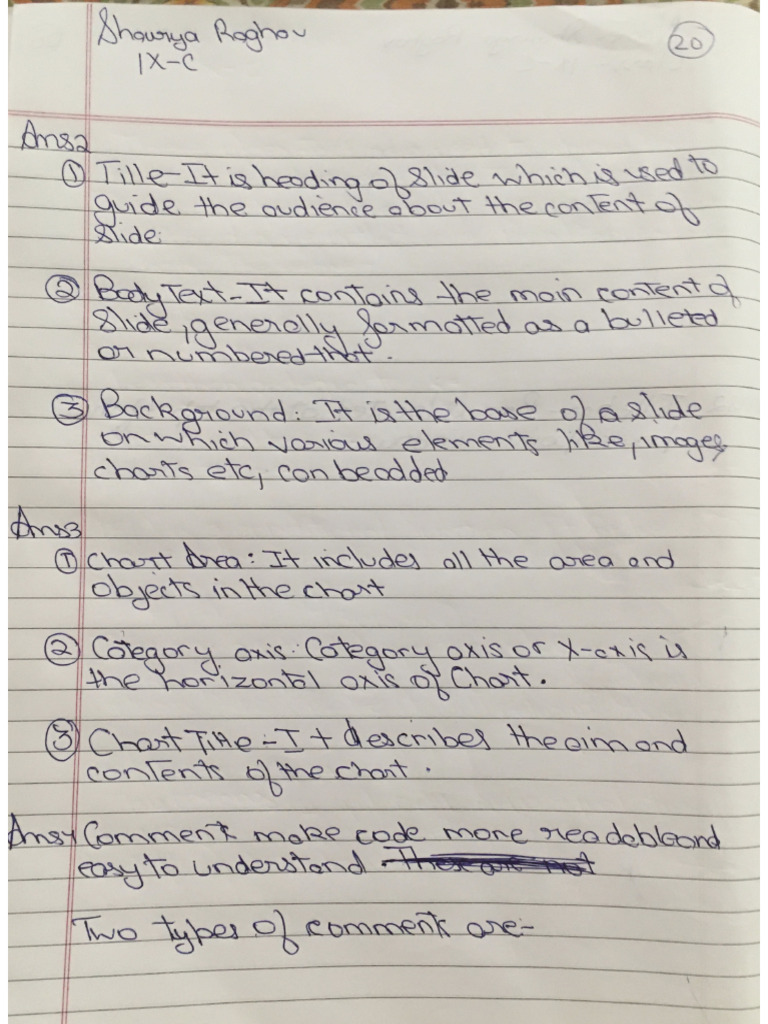 Shourya Raghav
20
IX-C
Ans2
① Title-It is heading of slide which is used to
guide the audience about the content of
slide.
② Body Text-It contains the main content of
slide, generally formatted as a bulleted
or numbered that.
③ Background: It is the base of a slide
on which various elements like, images,
charts etc, can be added
Ans3
① Chart Area: It includes all the area and
objects in the chart
② Category axis: Category axis or X-axis is
the horizontal axis of Chart.
③ Chart Title-It describes the aim and
contents of the chart.
Ans4 Comment make code more readable and
easy to understand.
Two types of comment are:-